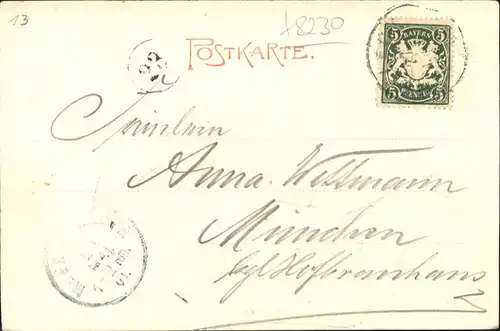 13
+8230
POSTKARTE.
BAYERN
5 5
5 PFENNIG 5
Fräulein
Anna Wittmann
München
kgl Hofbräuhaus